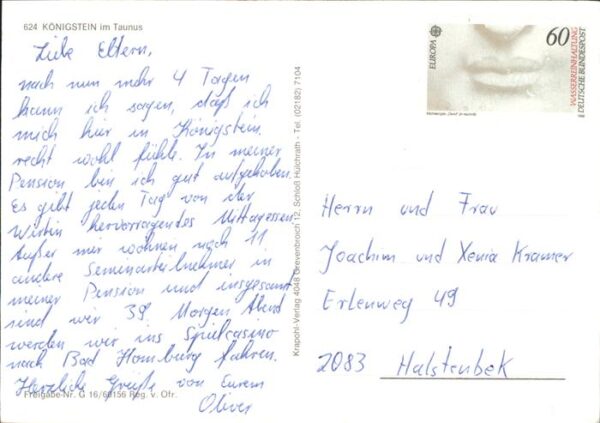 624 KÖNIGSTEIN im Taunus
Liebe Eltern,
nach nun mehr 4 Tagen
kann ich sagen, daß ich
mich hier in Königstein
recht wohl fühle. In meiner
Pension bin ich gut aufgehoben.
Es gibt jeden Tag von der
Wirtin hervorragendes Mittagessen.
Außer mir wohnen noch 11
andere Seminarteilnehmer in
meiner Pension und insgesamt
sind wir 39. Morgen Abend
werden wir ins Spielcasino
nach Bad Homburg fahren.
Herzliche Grüße von Eurem
Oliver
Freigabe-Nr. G 16/60156 Reg. v. Ofr.
Krapohl-Verlag 4048 Grevenbroich 12, Schloß Hülchrath - Tel. (02182) 7104
EUROPA
60
WASSERREINHALTUNG
DEUTSCHE BUNDESPOST
Herrn und Frau
Joachim und Xenia Kramer
Erlenweg 49
2083 Halstenbek